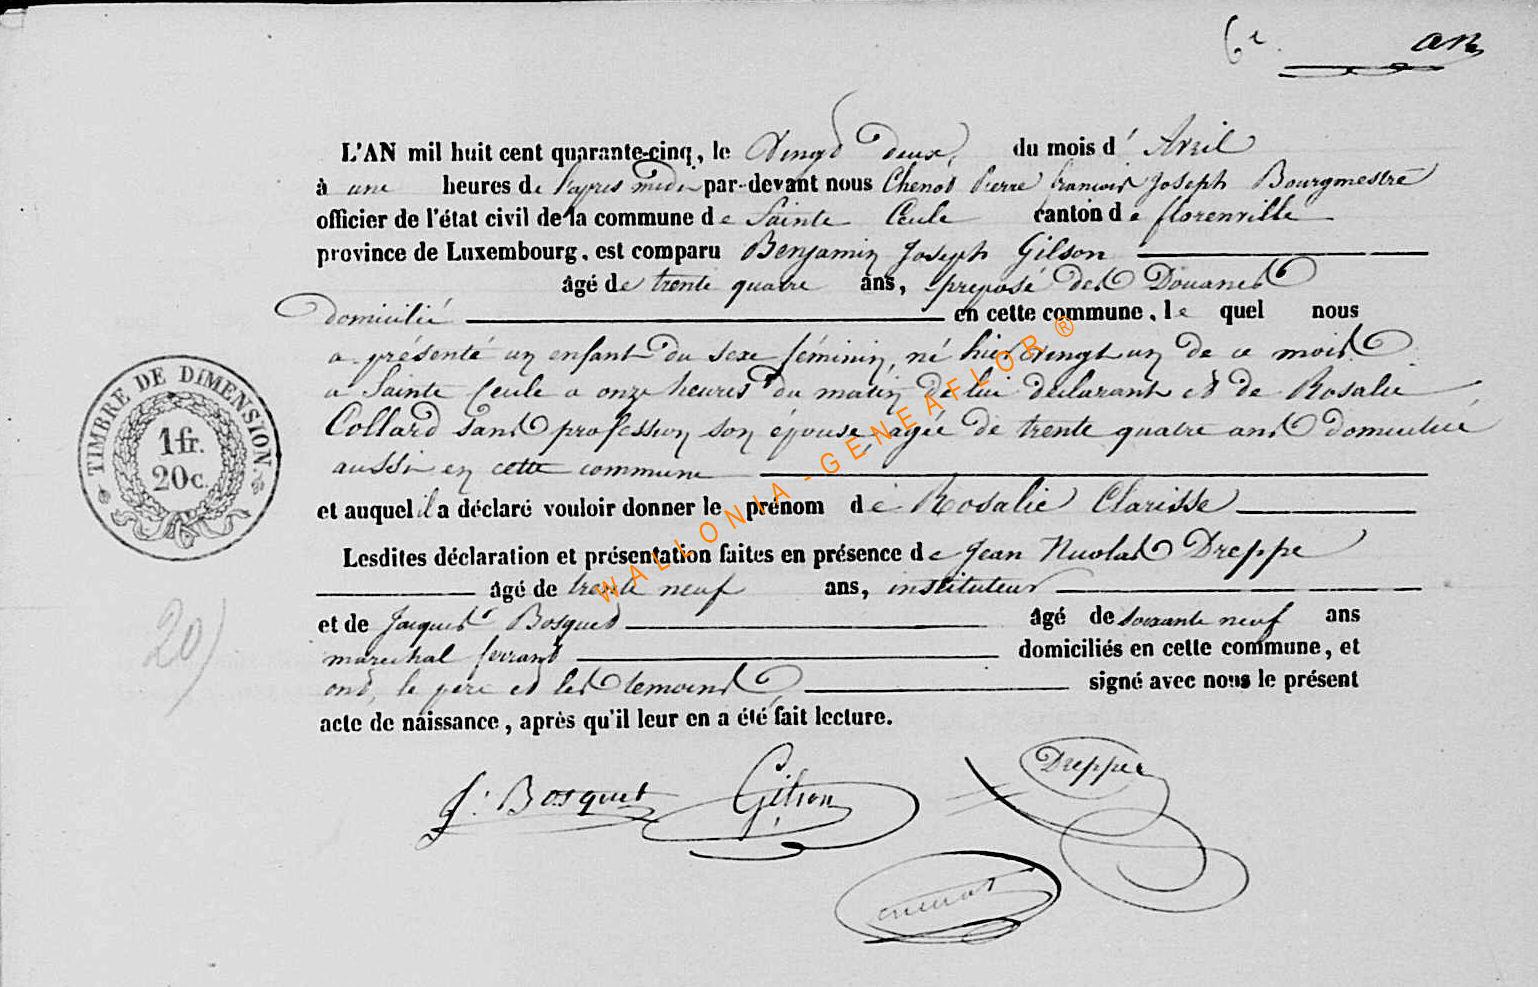 6e. an
L'AN mil huit cent quarante-cinq, le Vingt deux, du mois d' Avril
à une heures de l'apres midi par-devant nous Chenot Pierre francois Joseph Bourgmestre
officier de l'état civil de la commune de Sainte Cecile canton de florenville
province de Luxembourg, est comparu Benjamin Joseph Gilson
âgé de trente quatre ans, preposé des Douanes
domicilié en cette commune, le quel nous
a présenté un enfant du sexe féminin, né hier vingt un de ce mois
a Sainte Cecile a onze heures du matin, de lui déclarant et de Rosalie
Collard sans profession son épouse agée de trente quatre ans domiciliée
aussi en cette commune
et auquel il a déclaré vouloir donner le prénom de Rosalie Clarisse
Lesdites déclaration et présentation faites en présence de Jean Nicolas Dreppe
âgé de trente neuf ans, instituteur
et de Jacques Bosquet âgé de soixante neuf ans
marechal ferrant domiciliés en cette commune, et
ont, le père et les temoins signé avec nous le présent
acte de naissance, après qu'il leur en a été fait lecture.
TIMBRE DE DIMENSION.
1 fr.
20 c.
20)
J. Bosquet Gilson Dreppe
Chenot
WALLONIA - GENEAFLOR ®